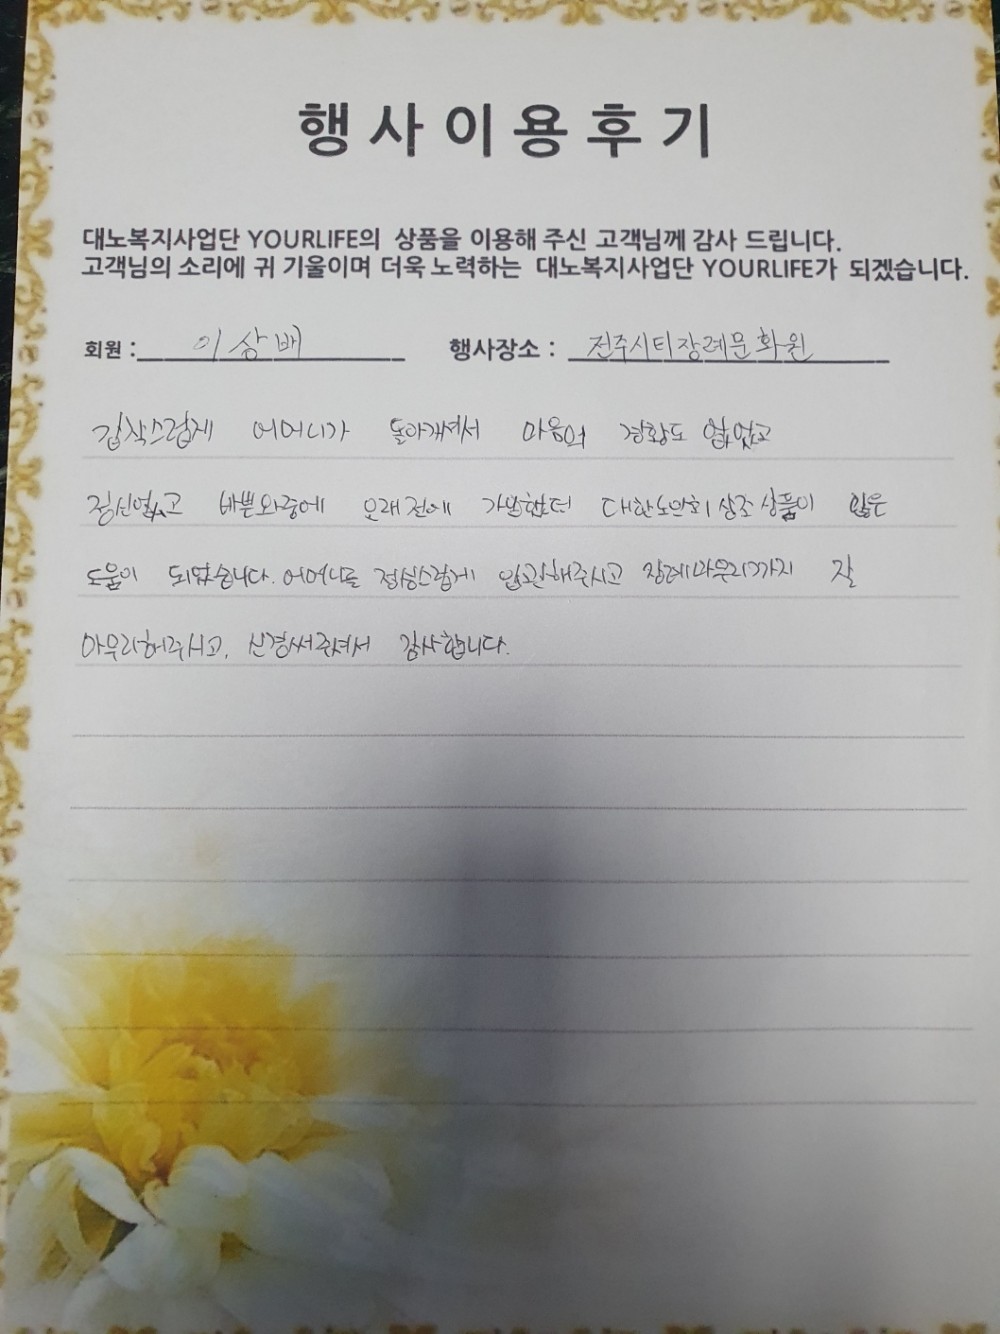 행사이용후기
대노복지사업단 YOURLIFE의 상품을 이용해 주신 고객님께 감사 드립니다.
고객님의 소리에 귀 기울이며 더욱 노력하는 대노복지사업단 YOURLIFE가 되겠습니다.
회원 : 이상배 행사장소 : 전주시티장례문화원
갑작스럽게 어머니가 돌아가셔서 마음의 경황도 없었고
정신없고 바쁜와중에 오래전에 가입했던 대한노인회 상조 상품이 많은
도움이 되었습니다. 어머니를 정성스럽게 입관해주시고 장례마무리까지 잘
마무리해주시고, 신경써주셔서 감사합니다.